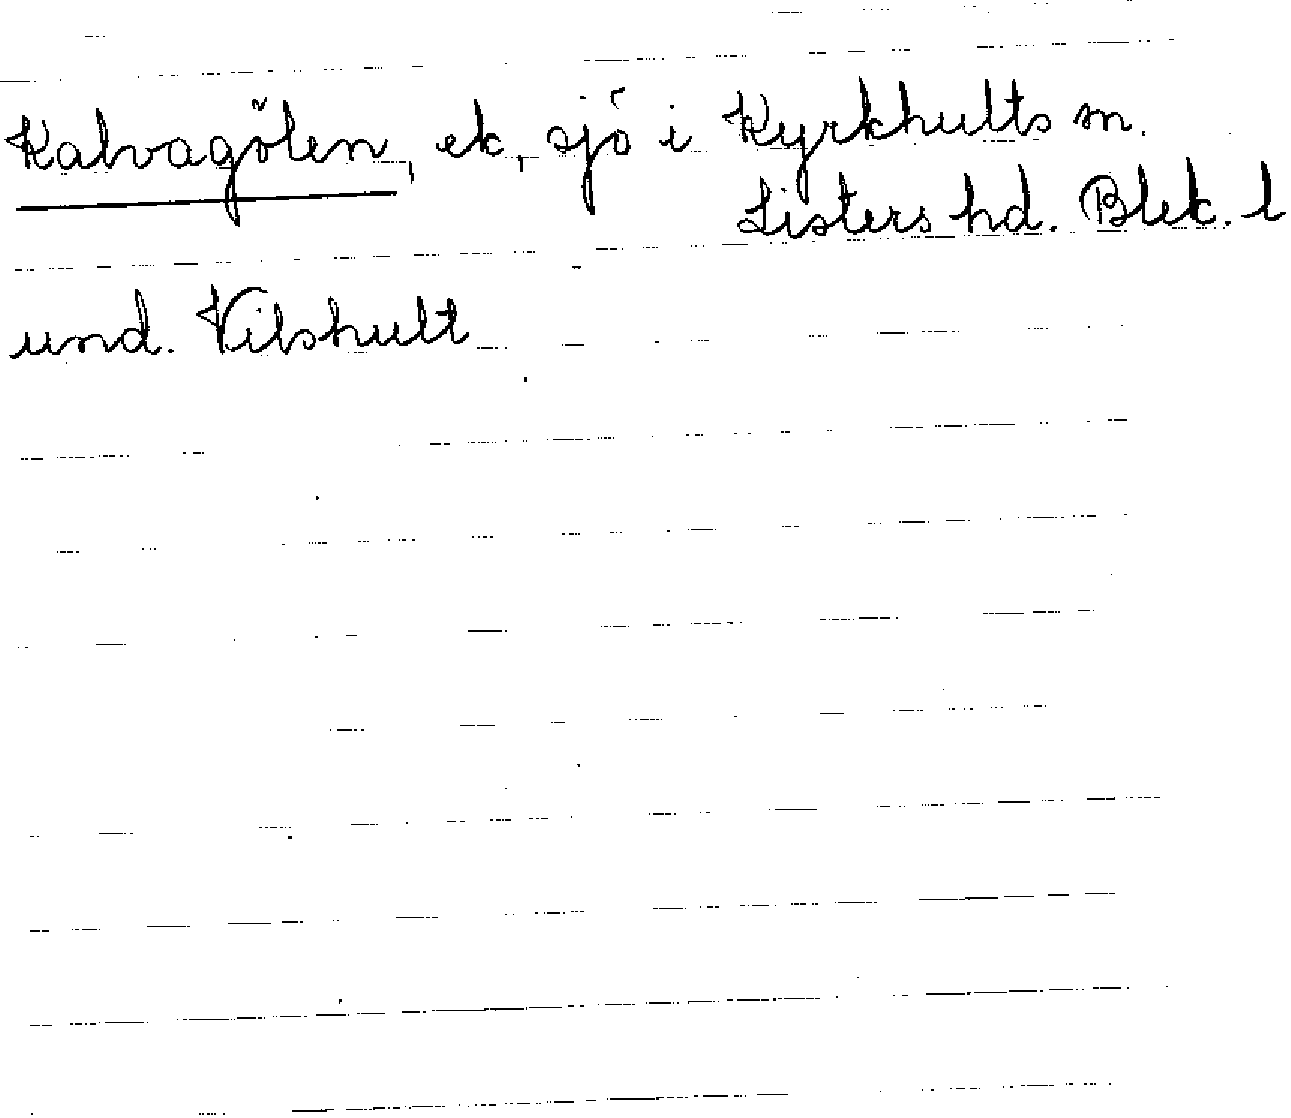 Kalvagölen, ek, sjö i Kyrkhults sn.
Listers hd. Blek. l
und. Vilshult